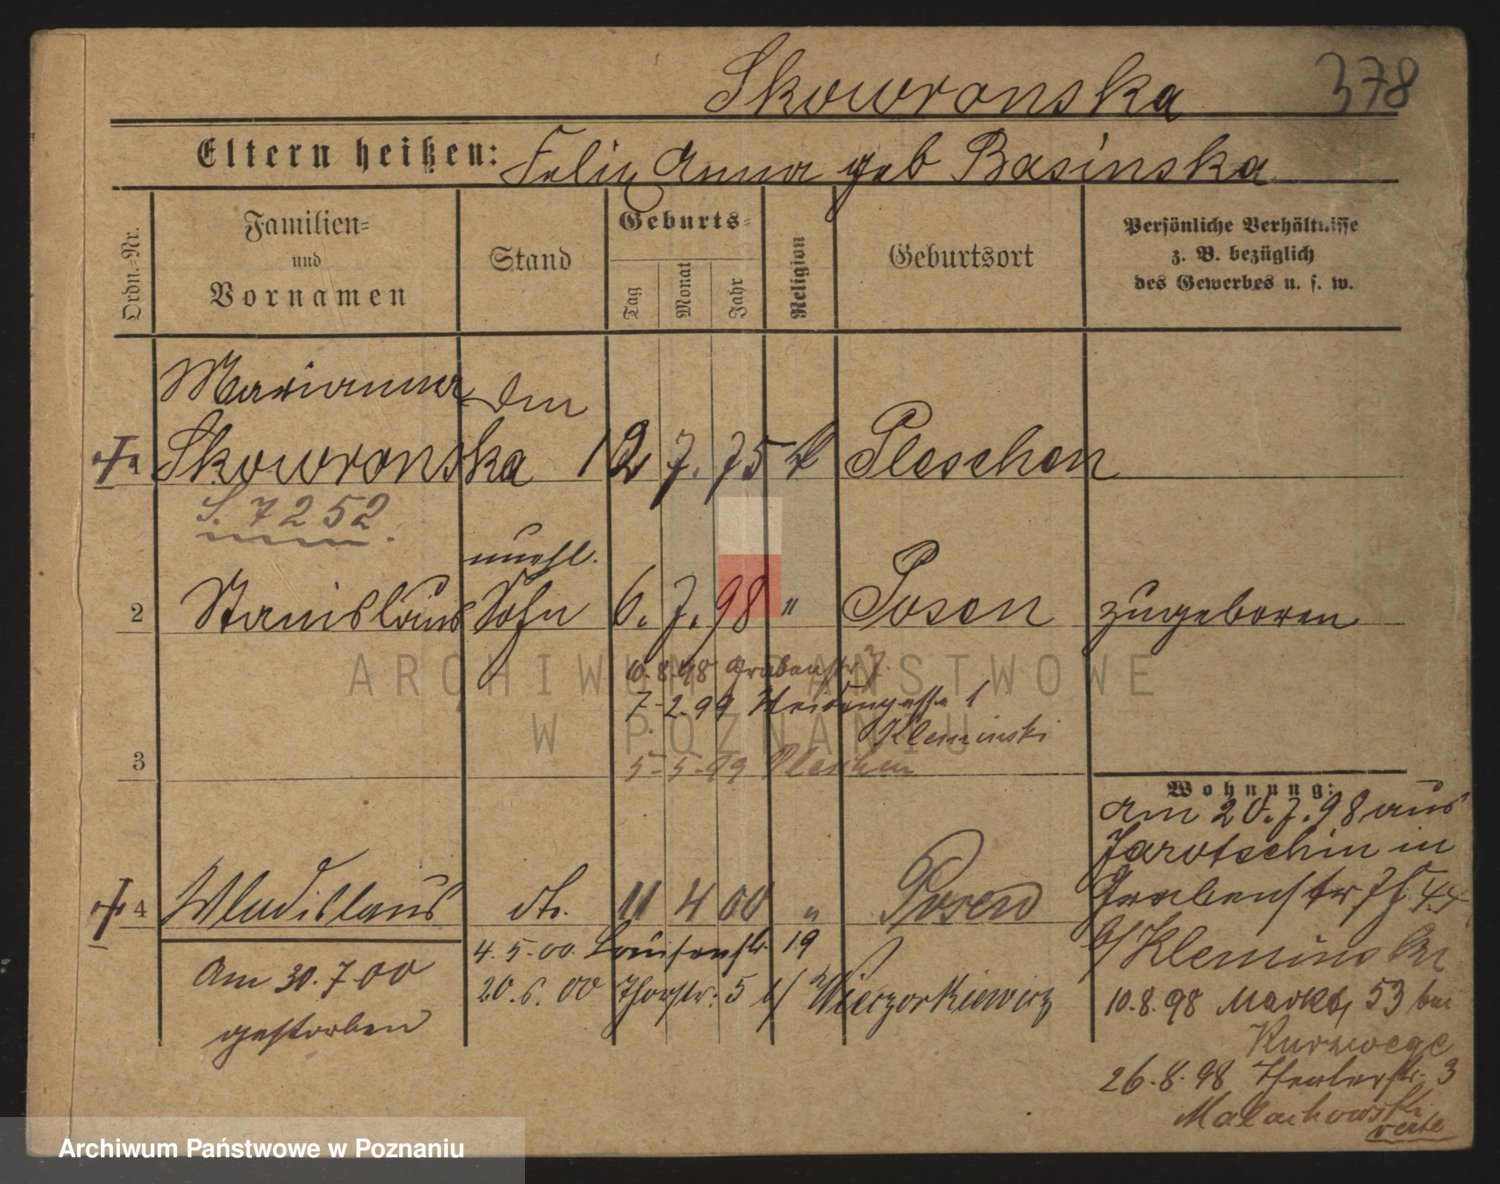 Skowronska 378
Eltern heißen: Felix Anna geb Basinska
Ordn.-Nr.
Familien-
und
Vornamen
Stand
Geburts-
Tag
Monat
Jahr
Religion
Geburtsort
Persönliche Verhältnisse
z. B. bezüglich
des Gewerbes u. s. w.
Marianna
1 Skowronska 12 7. 75 k Pleschen
S. 7252
unehl.
2 Stanislaus Sohn 6. 7. 98 " Posen zugeboren
10.8.98 Grabenstr 7.
7-2.99
Kleminski
3 5-5-99 Pleschen
Wohnung:
am 20.7.98 aus
Jarotschin in
Grabenstr 7
b/Kleminski
4 Wladislaus dto. 11 4 00 " Posen
4.5.00 Louisenstr. 19
20.6.00 5 b/ Wieczorkiewicz
Am 30.7 00
gestorben
10.8.98 Markt 53 bei
Kurzwege
26.8.98 Theaterstr. 3
Malachowski
verte
ARCHIWUM PAŃSTWOWE
W POZNANIU
Archiwum Państwowe w Poznaniu